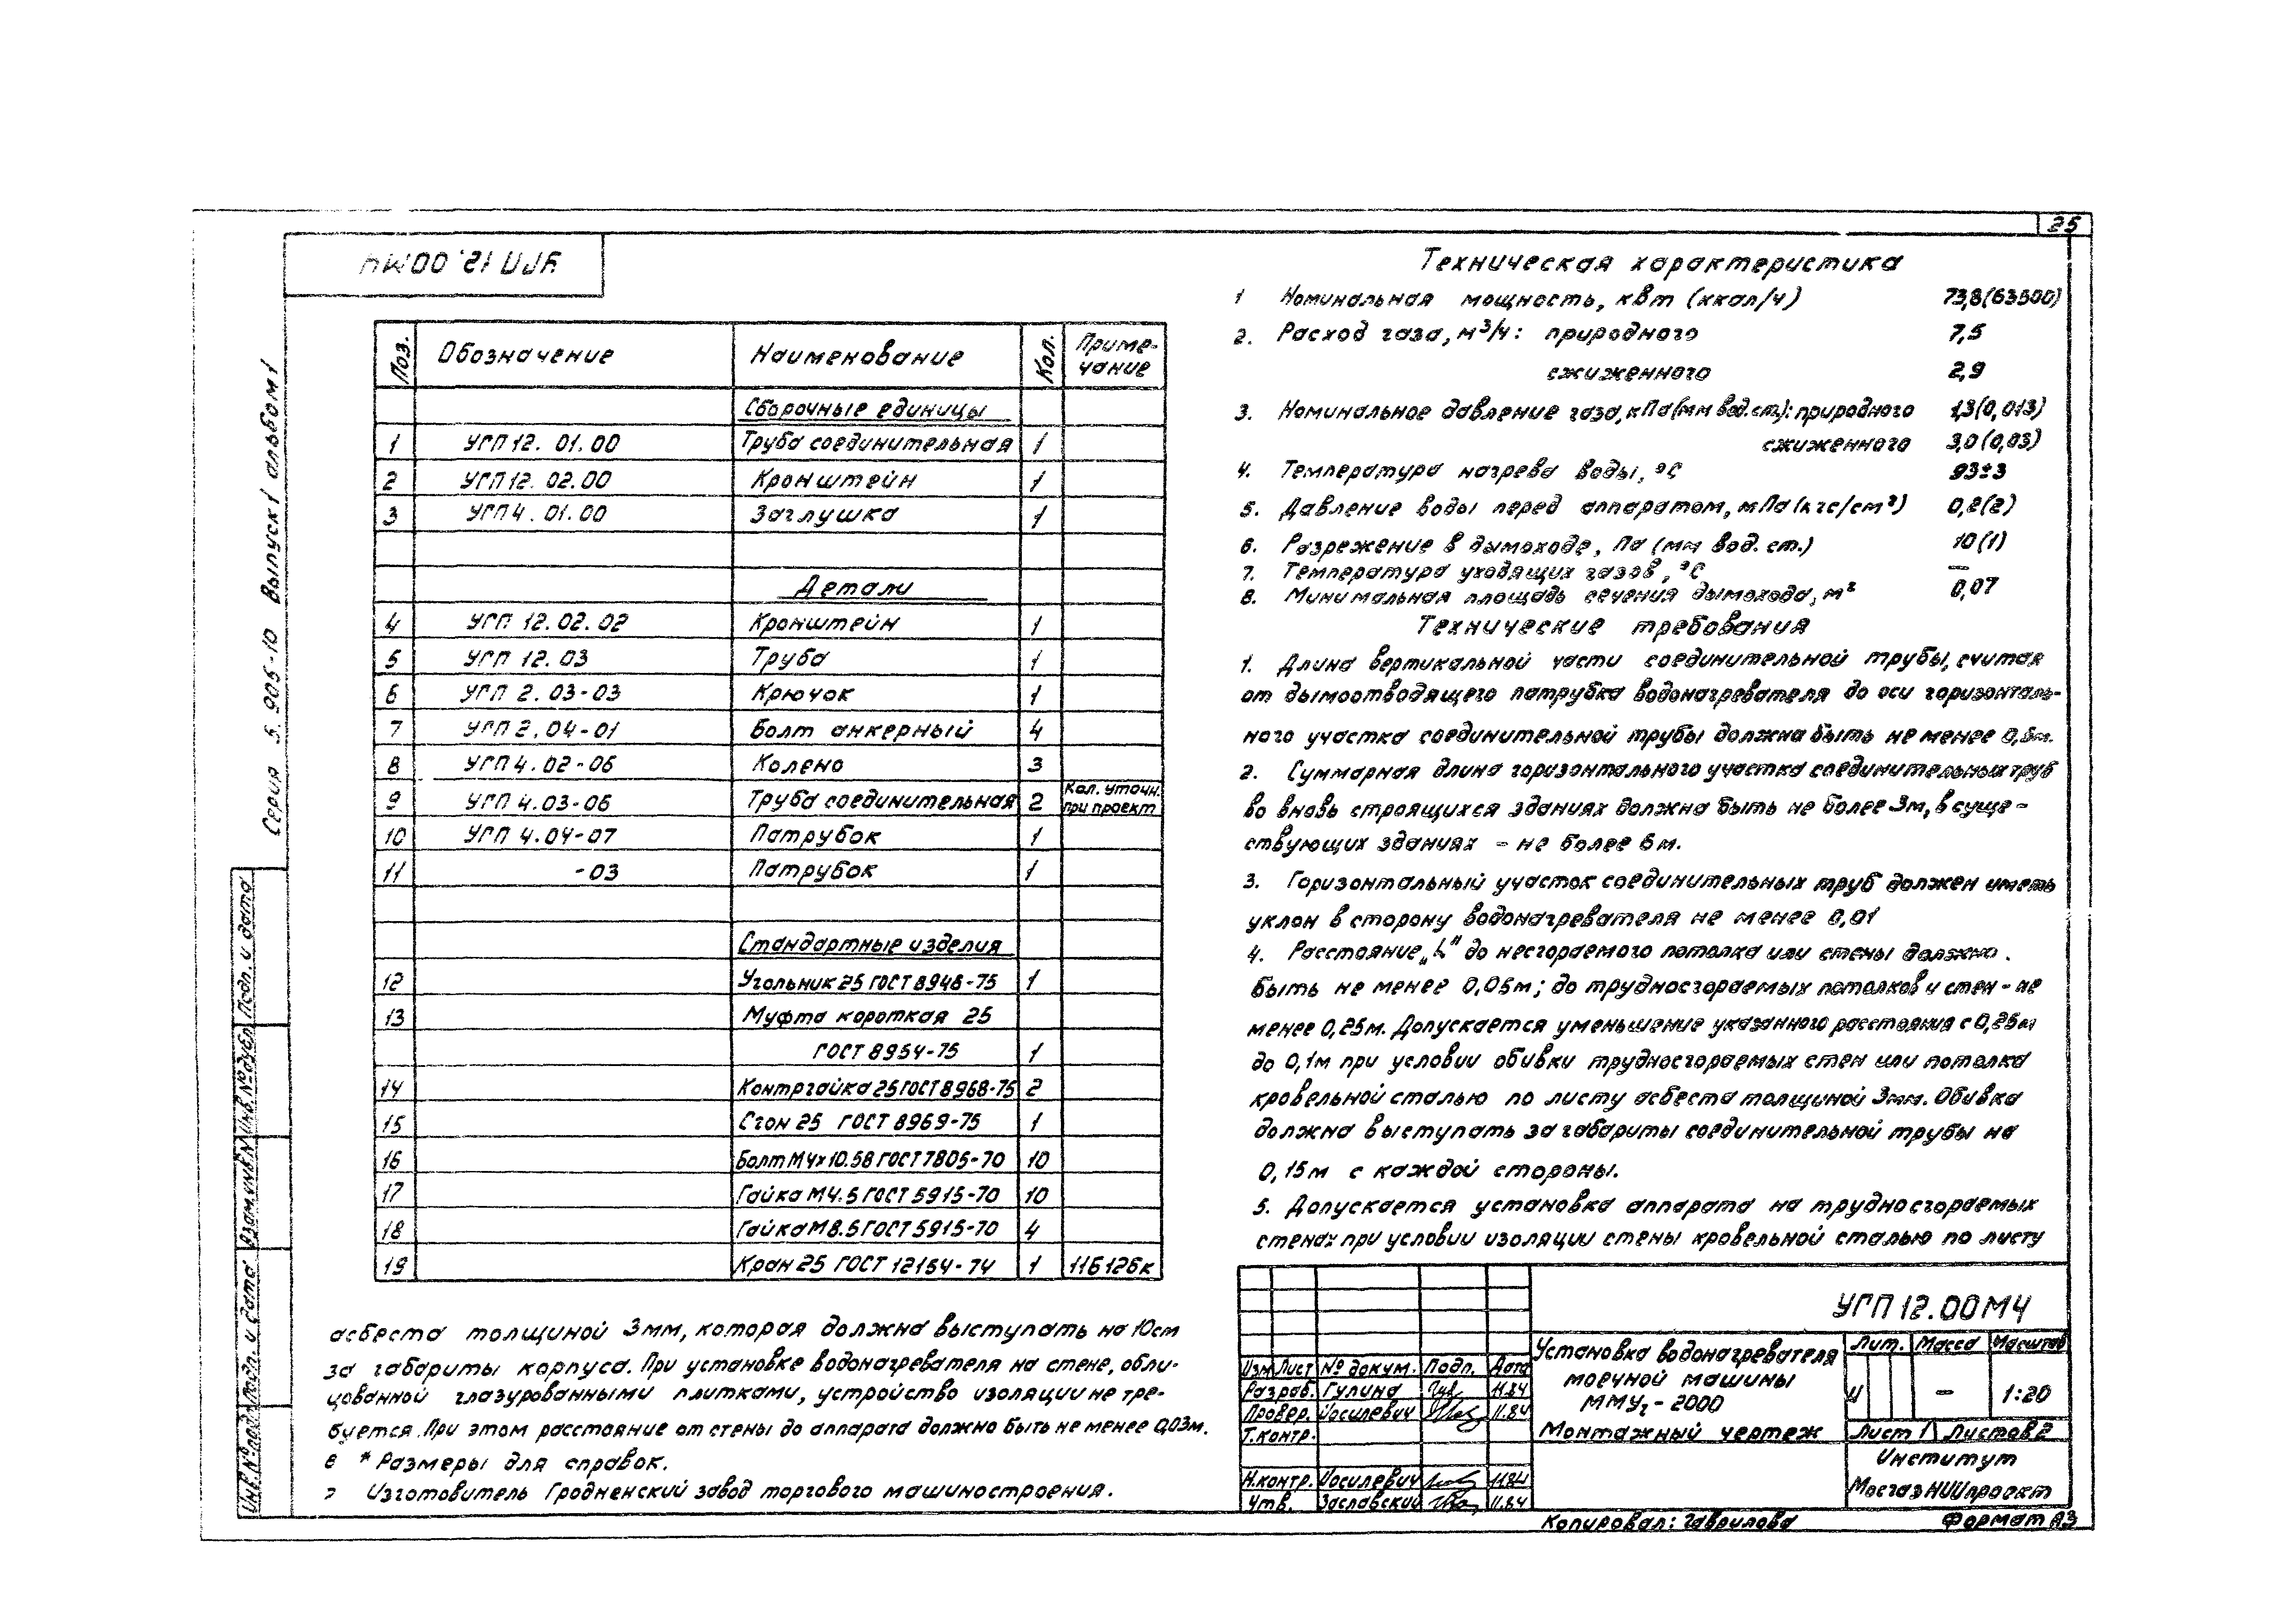 25
УГП 12.00МЧ
Серия 5.905-10 Выпуск 1 альбом 1
Поз. Обозначение Наименование Кол. Приме-
чание
Сборочные единицы
1 УГП 12. 01. 00 Труба соединительная 1
2 УГП 12. 02. 00 Кронштейн 1
3 УГП 4. 01. 00 Заглушка 1
Детали
4 УГП 12. 02. 02 Кронштейн 1
5 УГП 12. 03 Труба 1
6 УГП 2. 03-03 Крючок 1
7 УГП 2. 04-01 Болт анкерный 4
8 УГП 4. 02-06 Колено 3
9 УГП 4.03-06 Труба соединительная 2 Кол. уточн.
при проект
10 УГП 4.04-07 Патрубок 1
11 -03 Патрубок 1
Стандартные изделия
12 Угольник 25 ГОСТ 8946-75 1
13 Муфта короткая 25
ГОСТ 8954-75 1
14 Контргайка 25 ГОСТ 8968-75 2
15 Сгон 25 ГОСТ 8969-75 1
16 Болт М4х10.58 ГОСТ 7805-70 10
17 Гайка М4.5 ГОСТ 5915-70 10
18 Гайка М8.5 ГОСТ 5915-70 4
19 Кран 25 ГОСТ 12154-74 1 11Б12бк
асбеста толщиной 3мм, которая должна выступать на 10см
за габариты корпуса. При установке водонагревателя на стене, обли-
цованной глазурованными плитками, устройство изоляции не тре-
буется. При этом расстояние от стены до аппарата должно быть не менее 0,03м.
6 * Размеры для справок.
7 Изготовитель Гродненский завод торгового машиностроения.
Техническая характеристика
1 Номинальная мощность, кВт (ккал/ч) 73,8(63500)
2. Расход газа, м³/ч: природного 7,5
сжиженного 2,9
3. Номинальное давление газа, кПа (мм вод. ст.): природного 1,3(0,013)
сжиженного 3,0(0,03)
4. Температура нагрева воды, °С 93±3
5. Давление воды перед аппаратом, мПа (кгс/см²) 0,2(2)
6. Разрежение в дымоходе, Па (мм вод. ст.) 10(1)
7. Температура уходящих газов, °С —
8. Минимальная площадь сечения дымохода, м² 0,07
Технические требования
1. Длина вертикальной части соединительной трубы, считая
от дымоотводящего патрубка водонагревателя до оси горизонталь-
ного участка соединительной трубы должна быть не менее 0,5м.
2. Суммарная длина горизонтального участка соединительных труб
во вновь строящихся зданиях должна быть не более 3м, в суще-
ствующих зданиях - не более 6м.
3. Горизонтальный участок соединительных труб должен иметь
уклон в сторону водонагревателя не менее 0,01
4. Расстояние „L" до несгораемого потолка или стены должно
быть не менее 0,05м; до трудносгораемых потолков и стен - не
менее 0,25м. Допускается уменьшение указанного расстояния с 0,25м
до 0,1м при условии обивки трудносгораемых стен или потолка
кровельной сталью по листу асбеста толщиной 3мм. Обивка
должна выступать за габариты соединительной трубы на
0,15м с каждой стороны.
5. Допускается установка аппарата на трудносгораемых
стенах при условии изоляции стены кровельной сталью по листу
УГП 12.00МЧ
Установка водонагревателя
моечной машины
ММУ₂-2000
Монтажный чертеж
Лит. Масса Масштаб
И — 1:20
Лист 1 Листов 2
Институт
МосгазНИИпроект
Изм Лист № докум. Подп. Дата
Разраб. Гулина 11.84
Провер. Иосилевич 11.84
Т.контр.
Н.контр. Иосилевич 11.84
Утв. Заславский 11.84
Копировал: Гаврилова Формат А3
Подп. и дата
Инв. № дубл.
Взам. инв. №
Подп. и дата
Инв. № подл.